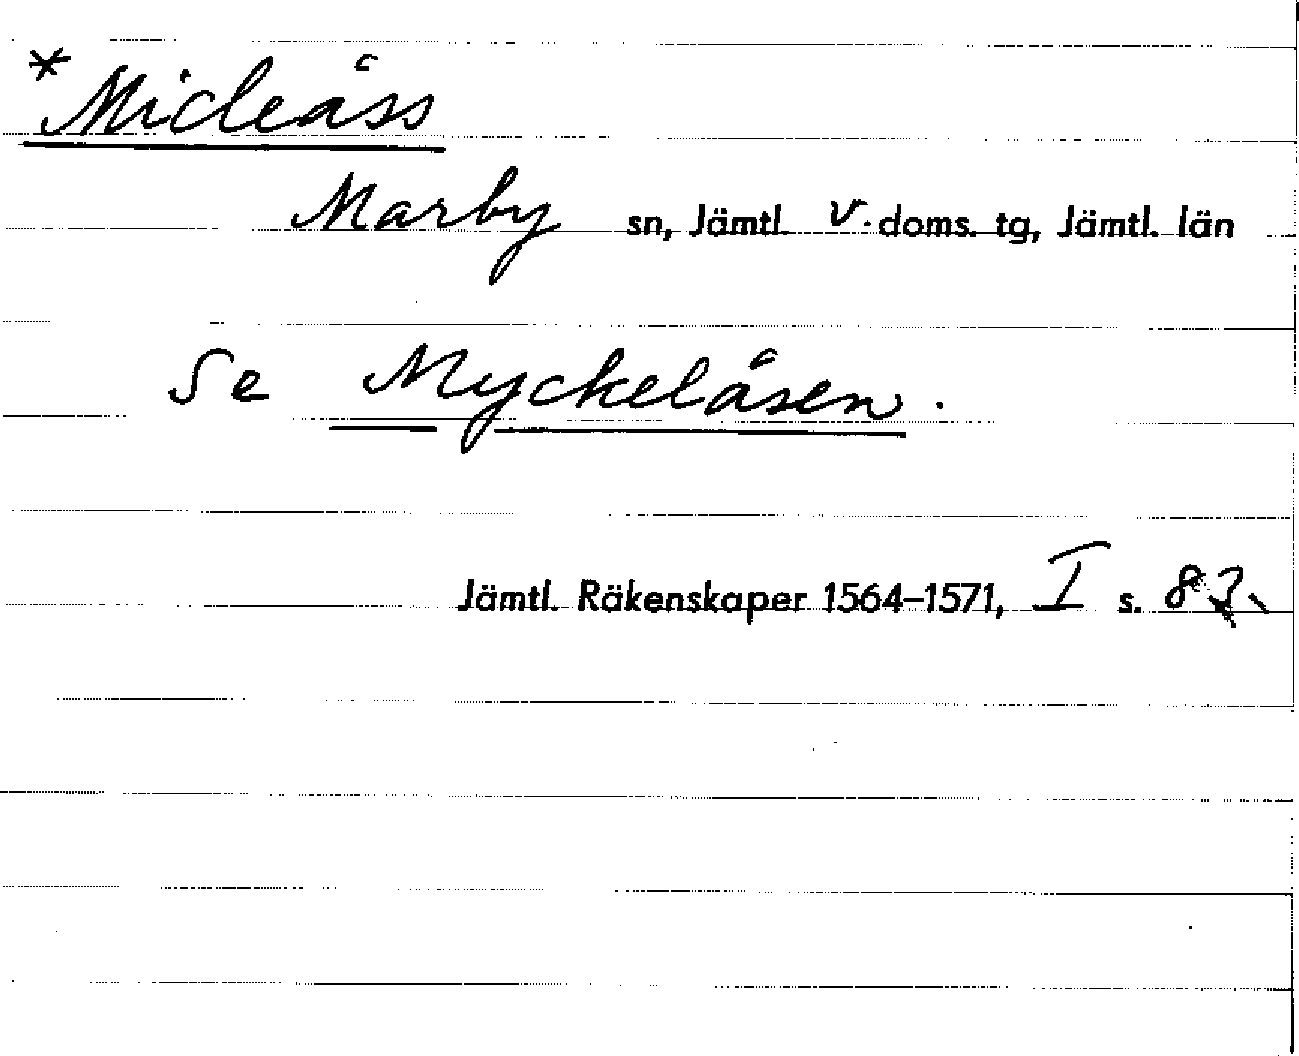 *Micleåss
Marby sn, Jämtl. V. doms. tg, Jämtl. län
Se Myckelåsen.
Jämtl. Räkenskaper 1564–1571, I s.